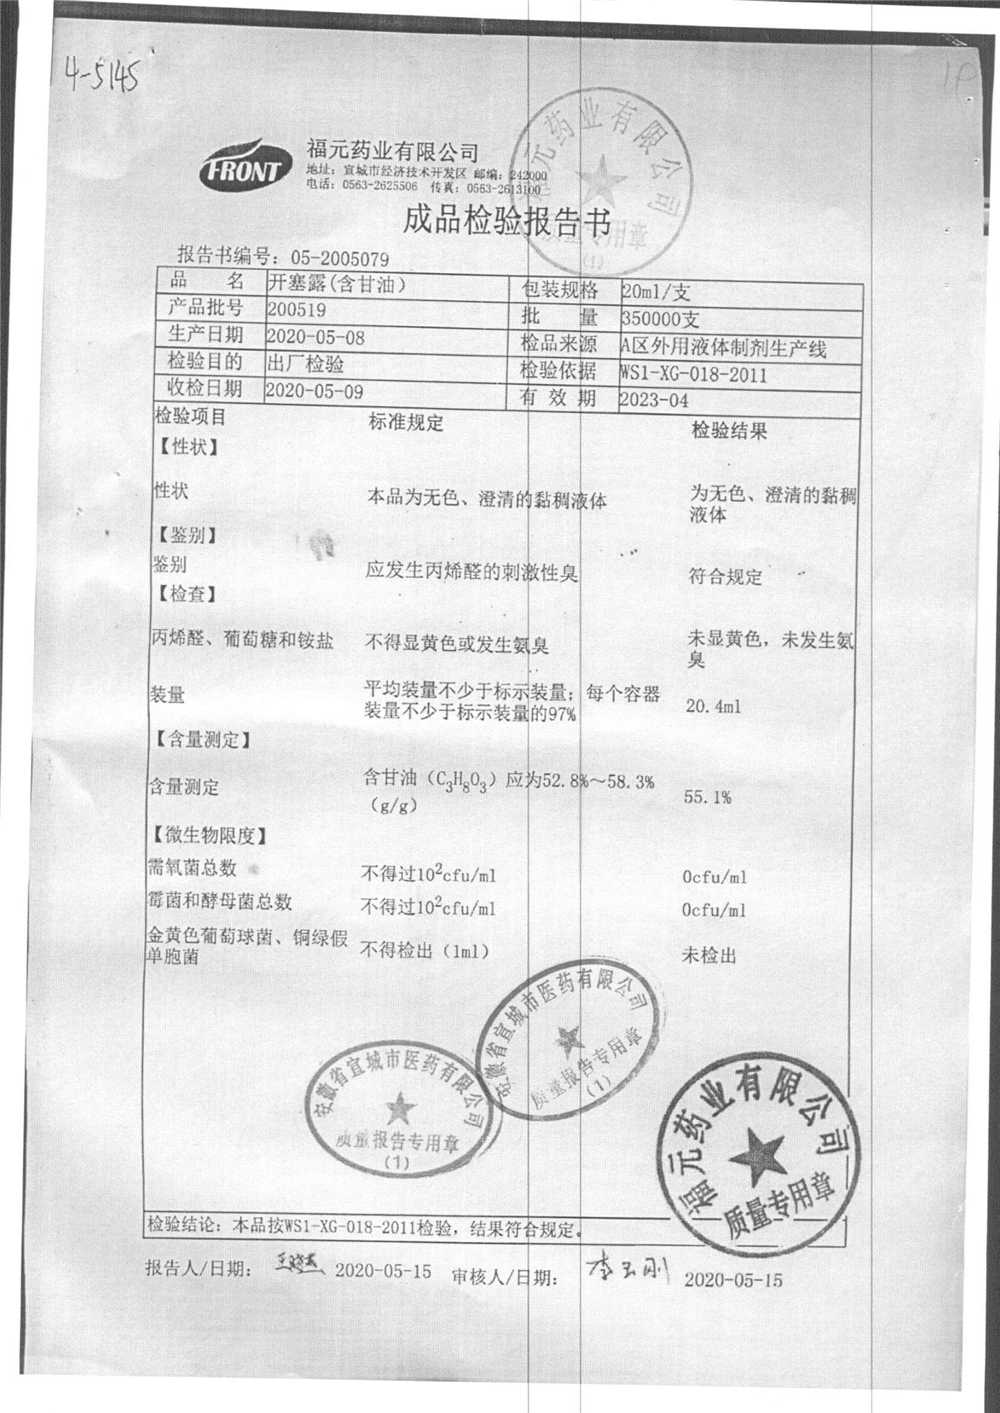 4-5145
1P
FRONT
福元药业有限公司
地址：宣城市经济技术开发区 邮编：242000
电话：0563-2625506 传真：0563-2613100
福元药业有限公司
质量专用章
(1)
成品检验报告书
报告书编号：05-2005079
品 名 开塞露(含甘油) 包装规格 20ml/支
产品批号 200519 批 量 350000支
生产日期 2020-05-08 检品来源 A区外用液体制剂生产线
检验目的 出厂检验 检验依据 WS1-XG-018-2011
收检日期 2020-05-09 有 效 期 2023-04
检验项目 标准规定 检验结果
【性状】
性状 本品为无色、澄清的黏稠液体 为无色、澄清的黏稠
液体
【鉴别】
鉴别 应发生丙烯醛的刺激性臭 符合规定
【检查】
丙烯醛、葡萄糖和铵盐 不得显黄色或发生氨臭 未显黄色，未发生氨
臭
装量 平均装量不少于标示装量；每个容器
装量不少于标示装量的97% 20.4ml
【含量测定】
含量测定 含甘油（C₃H₈O₃）应为52.8%～58.3%
（g/g） 55.1%
【微生物限度】
需氧菌总数 不得过10²cfu/ml 0cfu/ml
霉菌和酵母菌总数 不得过10²cfu/ml 0cfu/ml
金黄色葡萄球菌、铜绿假
单胞菌 不得检出（1ml） 未检出
安徽省宣城市医药有限公司
质量报告专用章
(1)
安徽省宣城市医药有限公司
质量报告专用章
(1)
福元药业有限公司
质量专用章
检验结论：本品按WS1-XG-018-2011检验，结果符合规定。
报告人/日期： 2020-05-15 审核人/日期： 李玉刚 2020-05-15